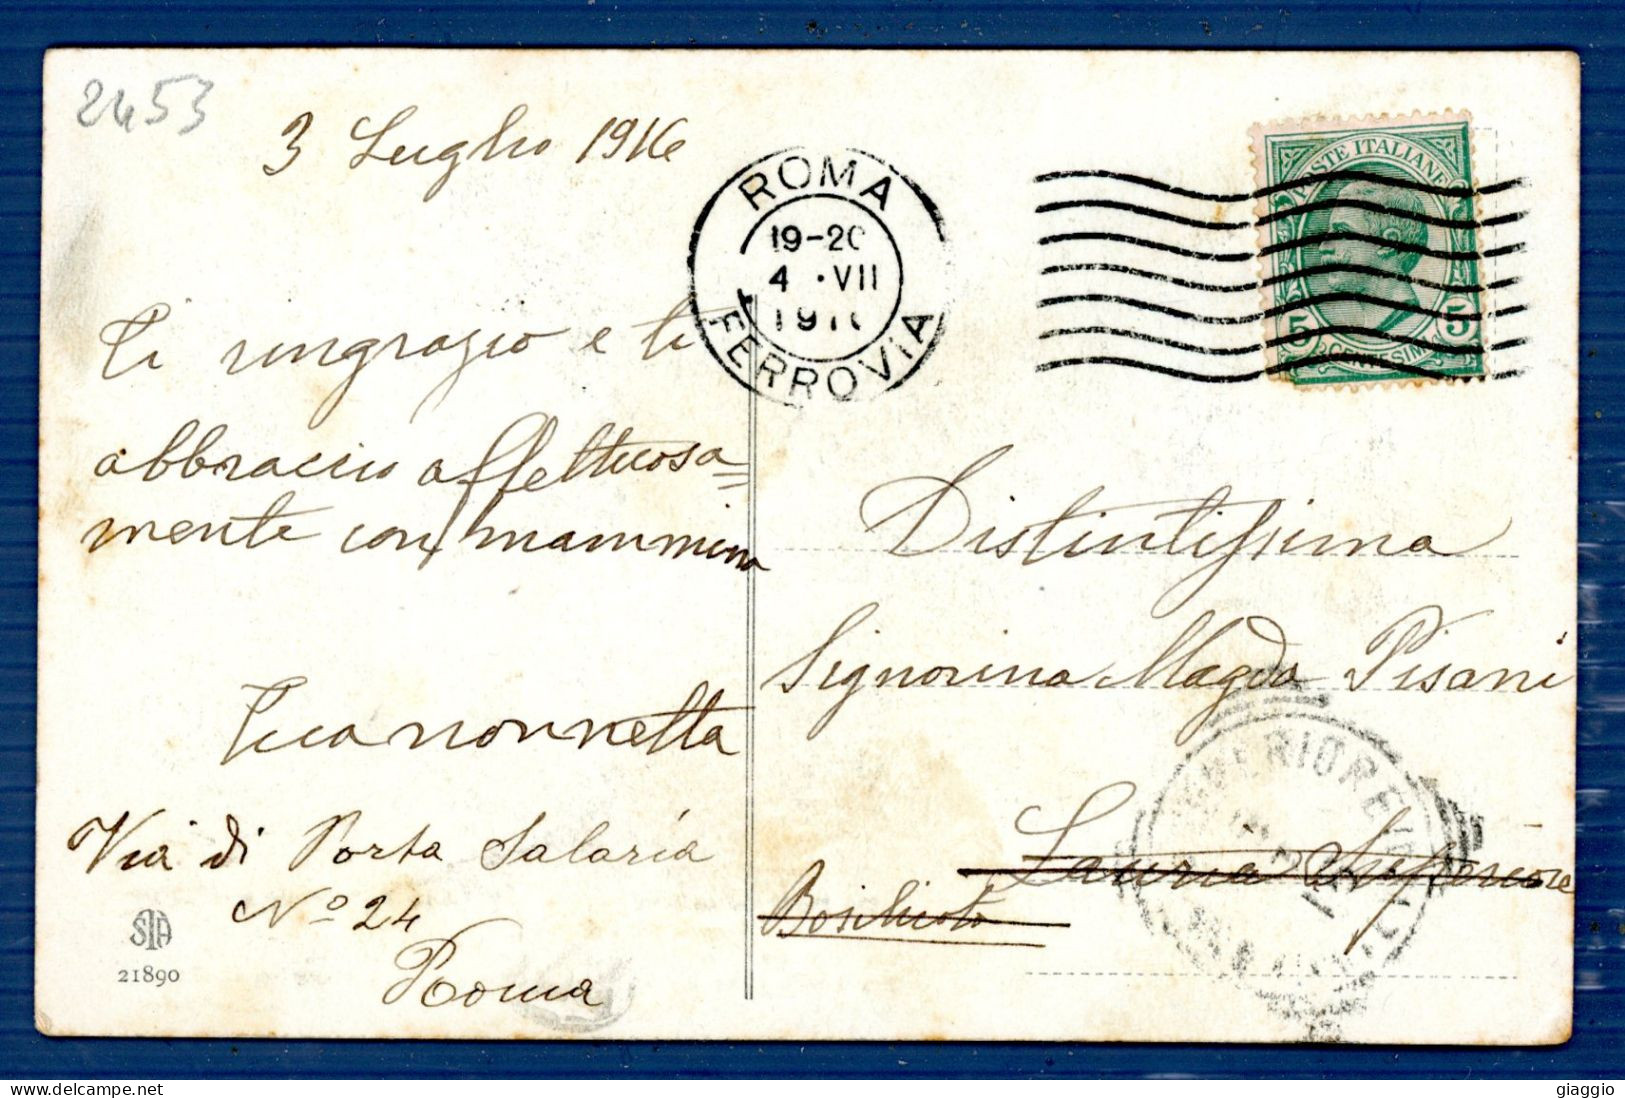 2453
3 Luglio 1916
ROMA
19-20
4 · VII
191
FERROVIA
POSTE ITALIANE
5 5
CENTESIMI
Ti ringrazio e ti
abbraccio affettuosa=
mente con mammina
Tua nonnetta
Via di Porta Salaria
No 24
Roma
STA
21890
Distintissima
Signorina Magda Pisani
Lauria Superiore
giaggio